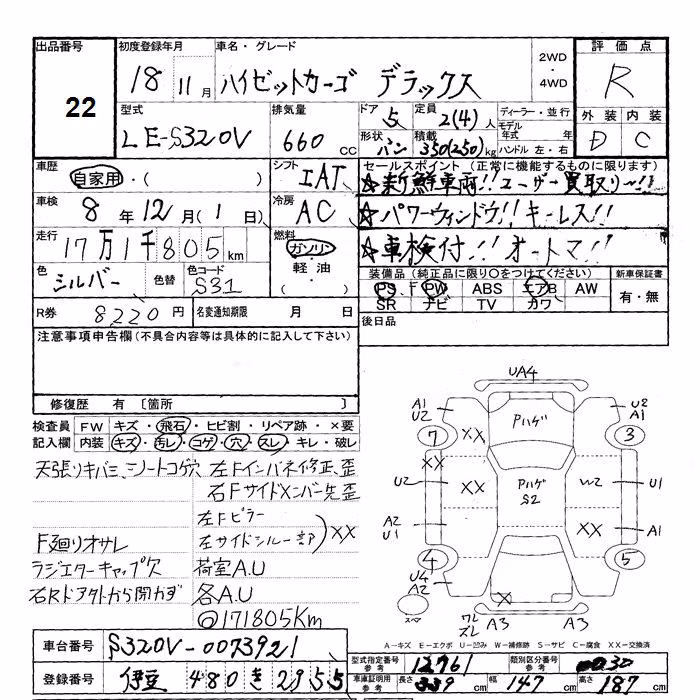 出品番号 初度登録年月 車名・グレード 2WD・4WD 評価点
22 18 11月 ハイゼットカーゴ デラックス R
型式 排気量 ドア 5 定員 2(4)人 ディーラー・並行 外装 内装
LE-S320V 660cc 形状 バン 積載 350(250)kg モデル年式 年式 ハンドル 左・右 D C
車歴 自家用・( ) シフト IAT セールスポイント(正常に機能するものに限ります)
☆新鮮車両!! ユーザー買取り〜!!
車検 8年12月(1日) 冷房 AC ☆パワーウィンドウ!! キーレス!!
走行 17万1千805km 燃料 ガソリン・軽油・( ) ☆車検付!! オートマ!!
色 シルバー 色替 色コード S31 装備品(純正品に限り○をつけてください) 新車保証書
PS PW ABS エアB AW 有・無
SR ナビ TV カワ
R券 8220円 名変通知期限 月 日 後日品
注意事項申告欄(不具合内容等は具体的に記入して下さい)
修復歴 有 〔箇所 〕
検査員記入欄 FW キズ・飛石・ヒビ割・リペア跡・×要
内装 キズ・キレ・コゲ・穴・スレ・キレ・破レ
天張りキバミ、シートコゲ穴 左Fインパネ修正、歪
右Fサイドメンバー先歪
左Fピラー
F廻りオサレ 左サイドシルー部 XX
ラジエターキャップ欠 荷室A.U
右Rドア外から開かず 各A.U
◎171805Km
UA4
A1 U2 Pハゲ U2 A1
7 XX 3
XX
U2 XX Pハゲ S2 W2 U1
A2 U1 XX A1
4 5
U4 A2 X
スペア ワレ ズレ A3 A3
A-キズ E-エクボ U-凹み W-補修跡 S-サビ C-腐食 XX-交換済
車台番号 S320V-0073921 型式指定番号 参考 12961 類別区分番号 参考
登録番号 伊豆 480 き 2955 車庫証明用 参考 長さ 339cm 幅 147cm 高さ 187cm